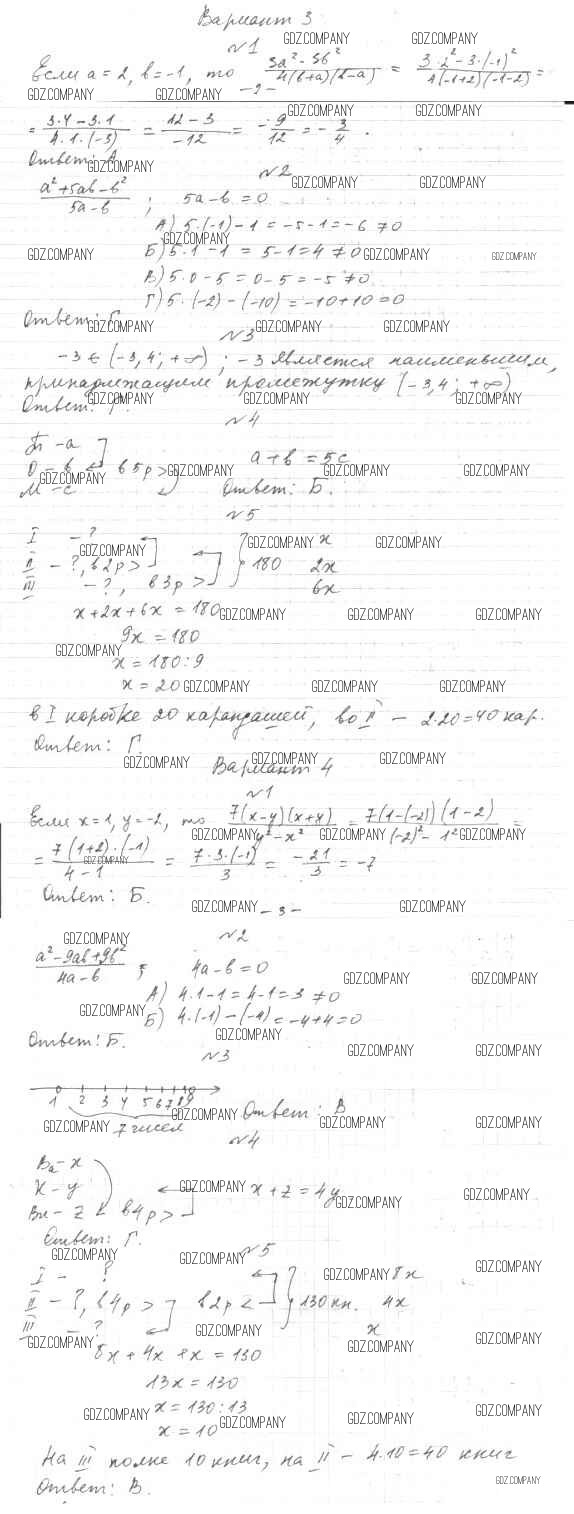 Вариант 3
№1
Если a = 2, b = -1, то (3a² - 3b²)/(4(b+a)(b-a)) = (3·2² - 3·(-1)²)/(4(-1+2)(-1-2)) =
- 2 -
= (3·4 - 3·1)/(4·1·(-3)) = (12 - 3)/(-12) = -9/12 = -3/4.
Ответ: А
№2
(a² + 5ab - b²)/(5a - b) ; 5a - b = 0
А) 5·(-1) - 1 = -5 - 1 = -6 ≠ 0
Б) 5·1 - 1 = 5 - 1 = 4 ≠ 0
В) 5·0 - 5 = 0 - 5 = -5 ≠ 0
Г) 5·(-2) - (-10) = -10 + 10 = 0
Ответ: Г.
№3
-3 ∈ (-3,4; +∞) ; -3 является наименьшим,
принадлежащим промежутку (-3,4; +∞)
Ответ: Г.
№4
П - a
О - b в 5р > a + b = 5c
М - c Ответ: Б.
№5
I - ? x
II - ?, в 2р > 180 2x
III - ?, в 3р > 6x
x + 2x + 6x = 180
9x = 180
x = 180 : 9
x = 20
в I коробке 20 карандашей, во II - 2·20 = 40 кар.
Ответ: Г.
Вариант 4
№1
Если x = 1, y = -2, то 7(x-y)(x+y)/(y² - x²) = 7(1-(-2))(1-2)/((-2)² - 1²) =
= 7(1+2)·(-1)/(4 - 1) = 7·3·(-1)/3 = -21/3 = -7
Ответ: Б.
- 3 -
№2
(a² - 9ab + 9b²)/(4a - b) ; 4a - b = 0
А) 4·1 - 1 = 4 - 1 = 3 ≠ 0
Б) 4·(-1) - (-4) = -4 + 4 = 0
Ответ: Б.
№3
1 2 3 4 5 6 7 8 9
7 чисел Ответ: В
№4
Ва - x
К - y x + z = 4y
Вн - z < в 4р >
Ответ: Г.
№5
I - ? 8x
II - ?, в 4р > в 2р < 130 кн. 4x
III - ? x
8x + 4x + x = 130
13x = 130
x = 130 : 13
x = 10
На III полке 10 книг, на II - 4·10 = 40 книг
Ответ: В.
GDZ.COMPANY